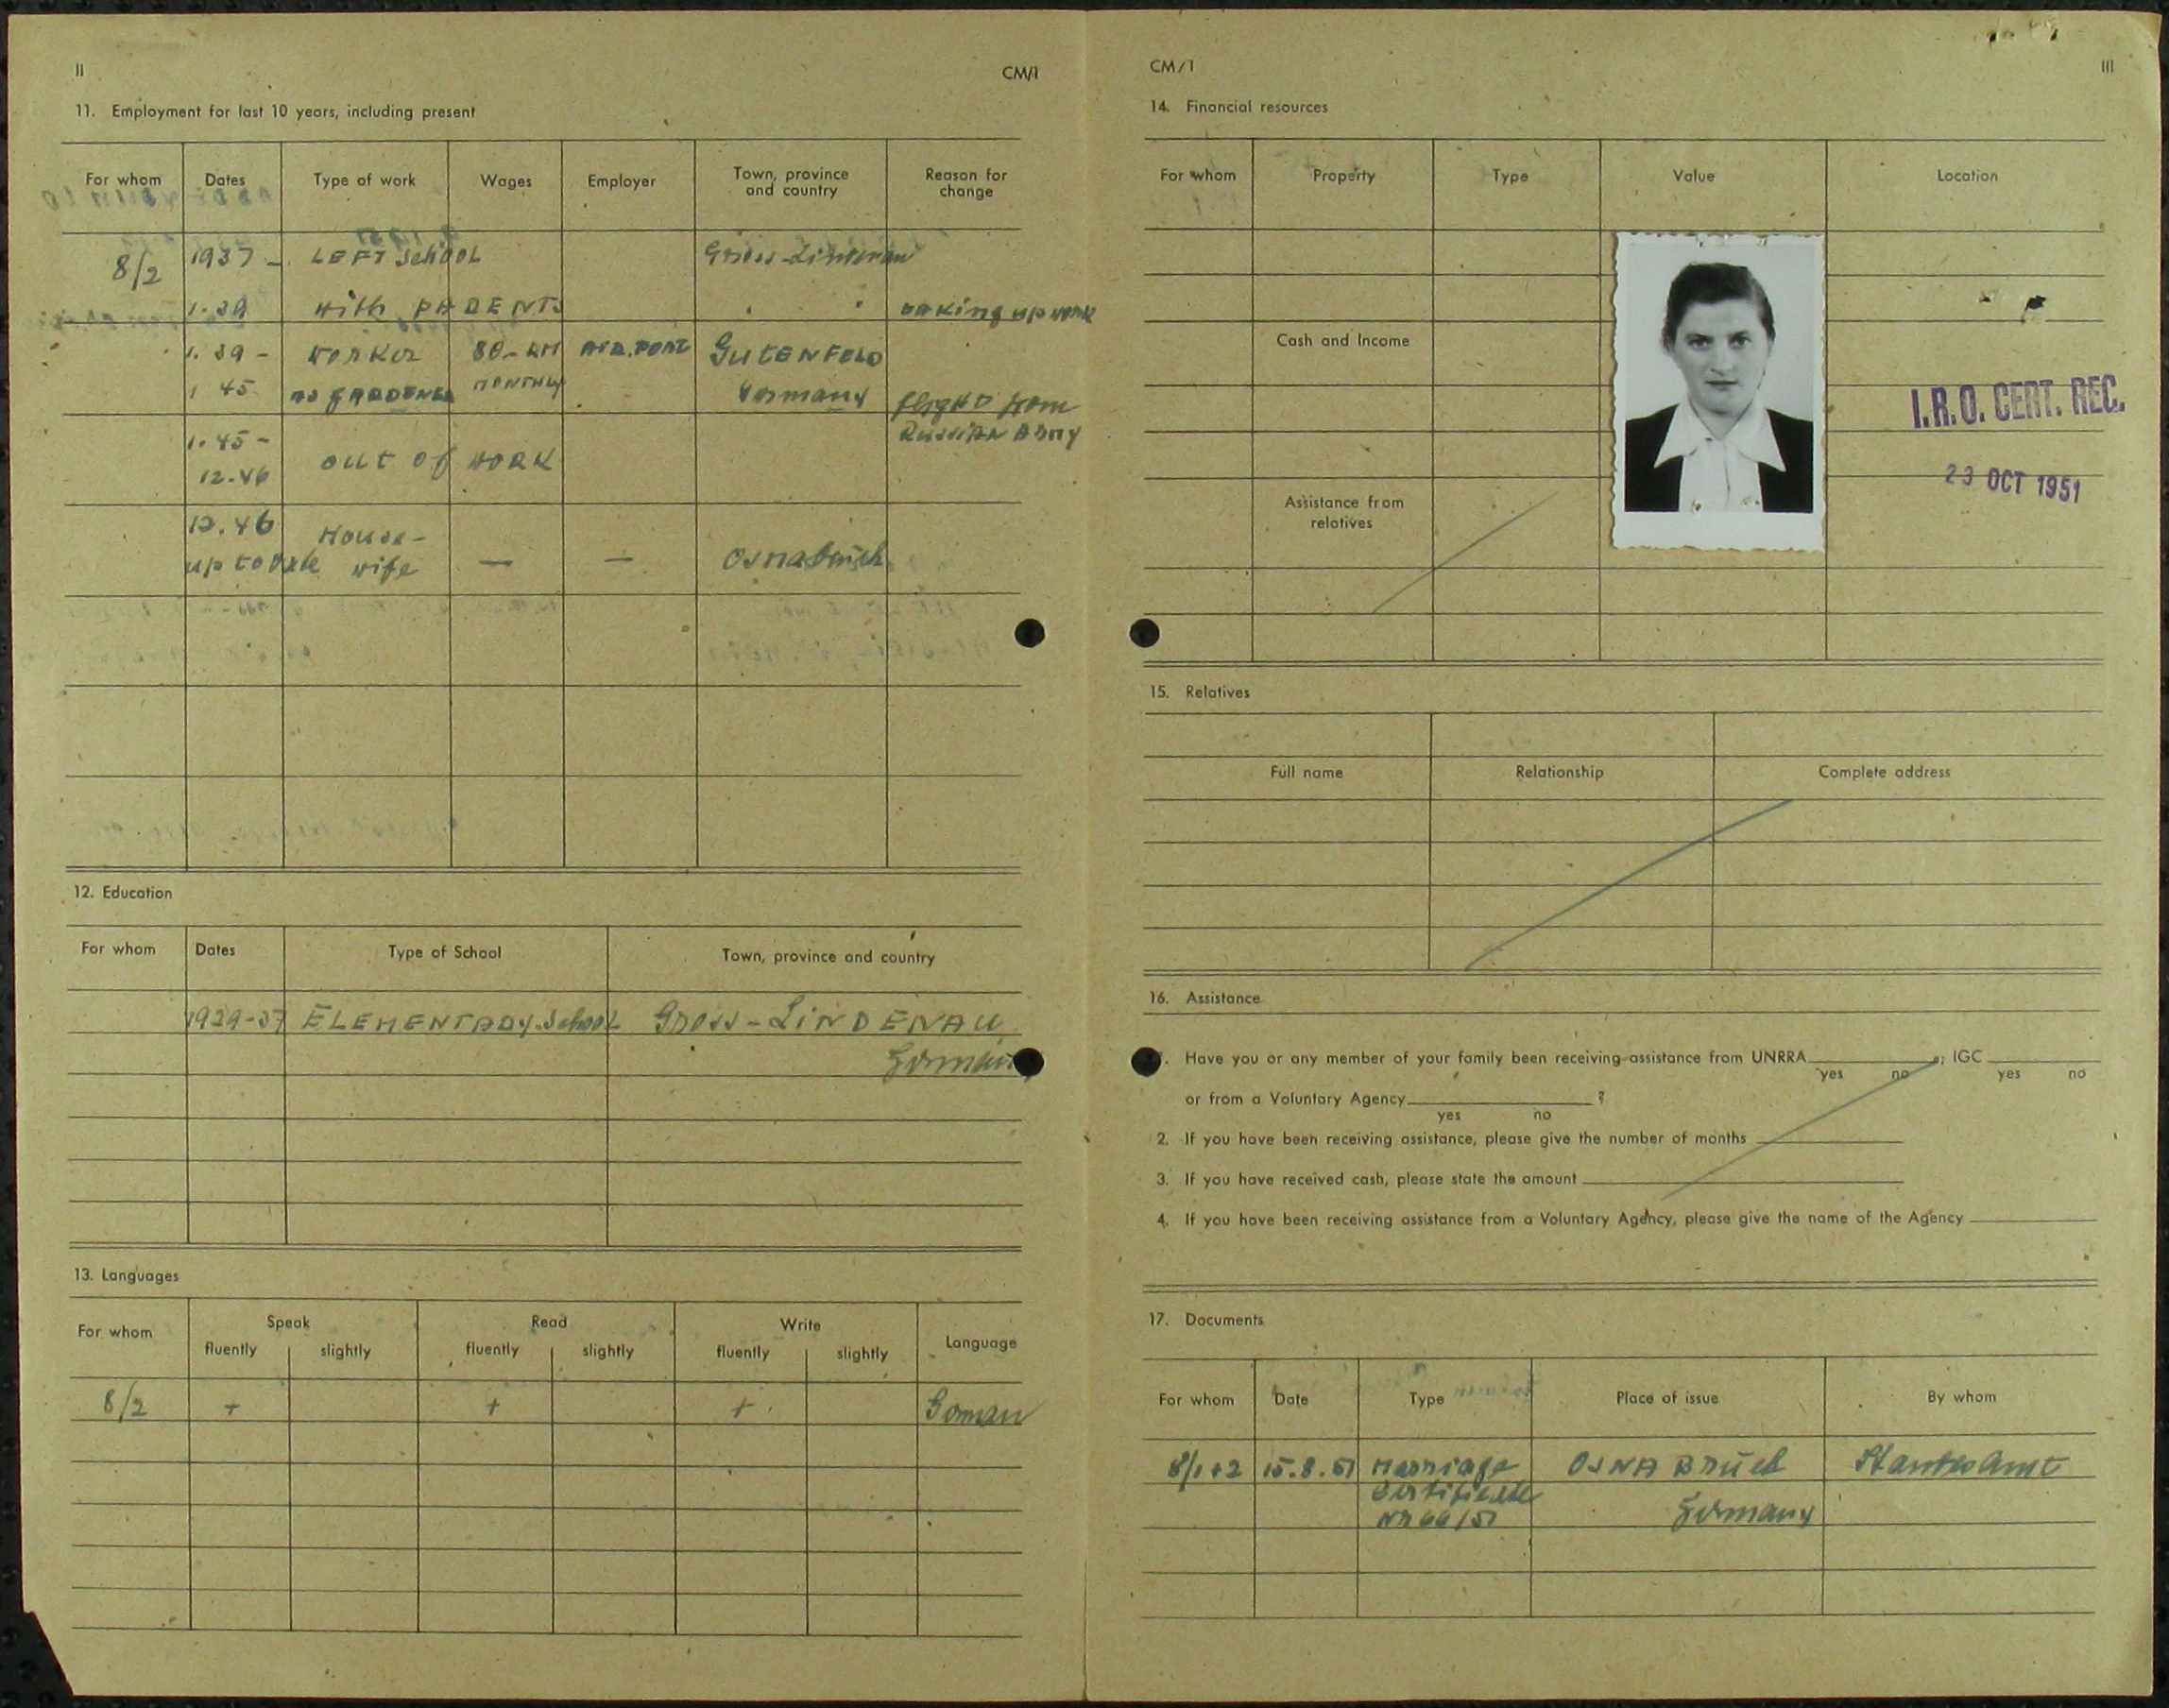 II
CM/1
11. Employment for last 10 years, including present
For whom Dates Type of work Wages Employer Town, province and country Reason for change
8/2 1937 - LEFT School Gross-Lindenau
1.39 with PARENTS " " taking up work
1.39 - worker 80.- RM AIR.PORT GUTENFELD
1 45 as GARDENER MONTHLY Germany flight from
Russian Army
1.45 -
12.46 out of WORK
12.46 House-
up to date wife — — Osnabrück
12. Education
For whom Dates Type of School Town, province and country
1929-37 ELEMENTARY.School Gross-LINDENAU
Germany
13. Languages
For whom Speak Read Write Language
fluently slightly fluently slightly fluently slightly
8/2 + + + German
CM/1
III
14. Financial resources
For whom Property Type Value Location
Cash and Income
I.R.O. CERT. REC.
23 OCT 1951
Assistance from relatives
15. Relatives
Full name Relationship Complete address
16. Assistance
. Have you or any member of your family been receiving assistance from UNRRA ; IGC
yes no yes no
or from a Voluntary Agency ?
yes no
2. If you have been receiving assistance, please give the number of months
3. If you have received cash, please state the amount
4. If you have been receiving assistance from a Voluntary Agency, please give the name of the Agency
17. Documents
For whom Date Type Place of issue By whom
8/1+2 15.8.51 Marriage OSNABRÜCK Standesamt
Certificate
Nr 66/51 Germany